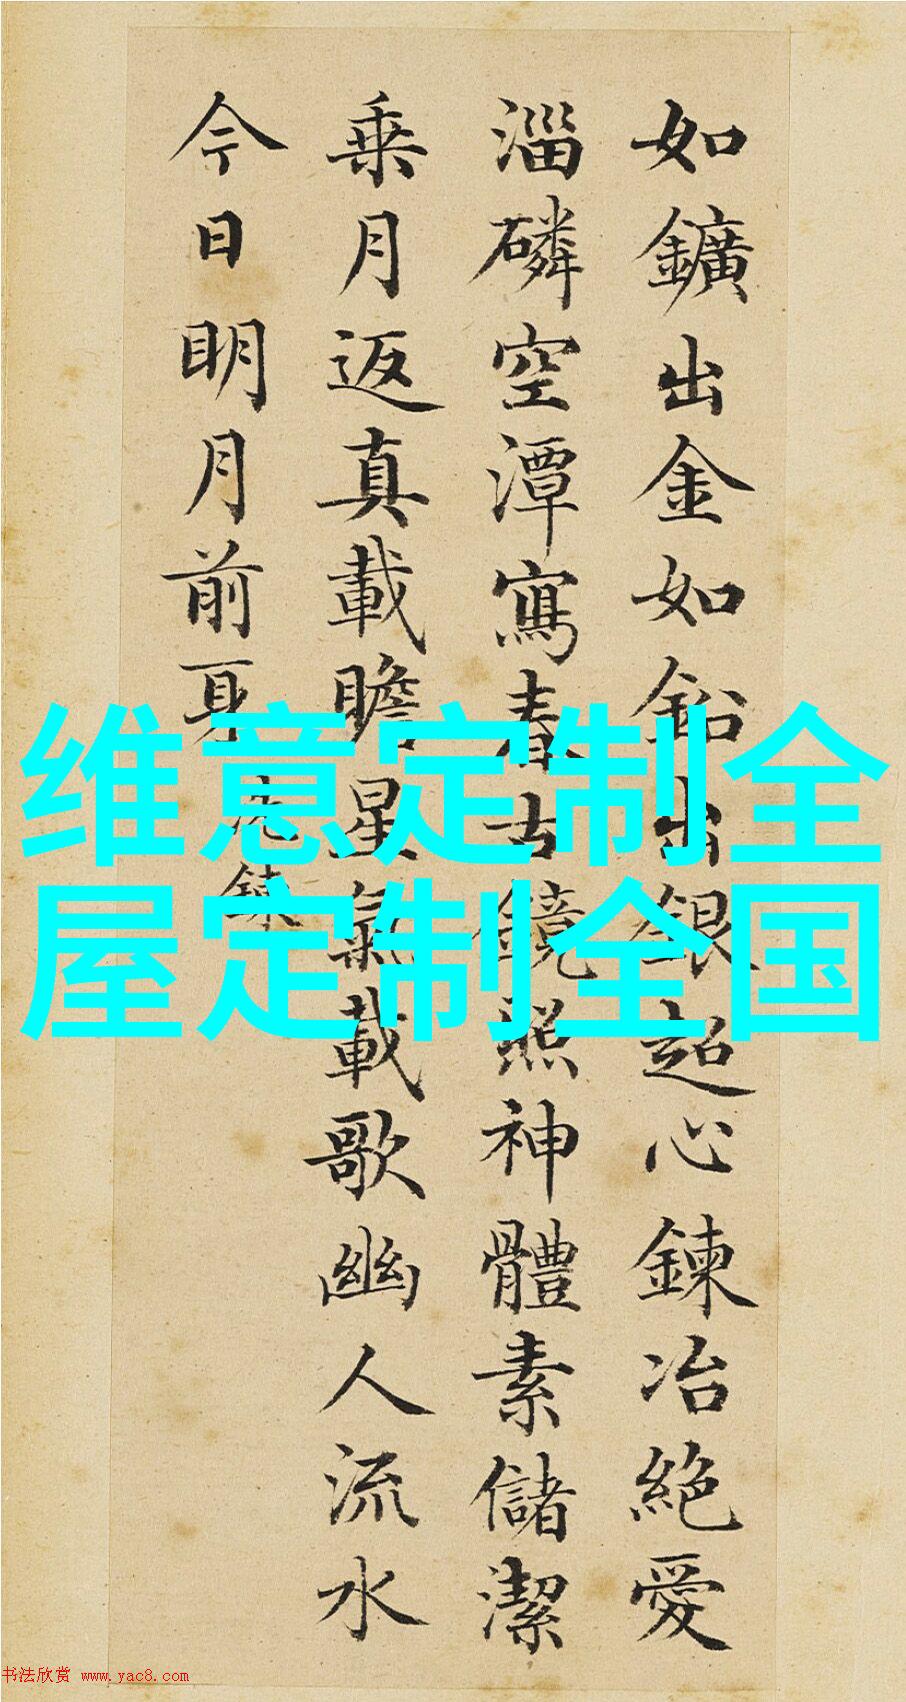 如鑛出金如鉛出銀超心鍊冶絕愛
淄磷空潭寫春古鏡照神體素儲潔
乗月返真載瞻星氣載歌幽人流水
今日明月前身
洗鍊
维意定制全
屋定制全国
书法欣赏 www.yac8.com